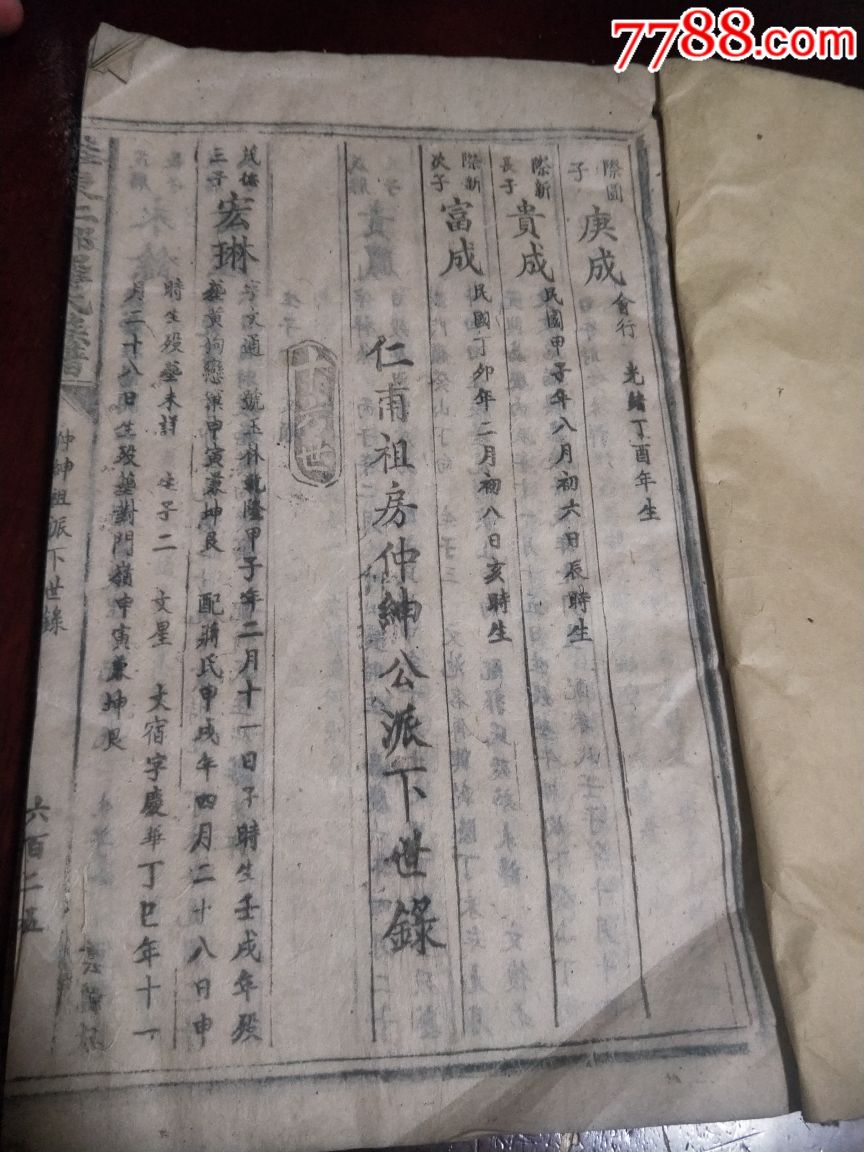 7788.com
際圖
子
庚成
會行 光緒丁酉年生
際新
長子
貴成
民國甲子年八月初六日辰時生
際新
次子
富成
民國丁卯年二月初八日亥時生
仁南祖房仲紳公派下世錄
十六世
茂
三子
宏琳
字 通 號玉林乾隆甲子年二月十一日子時生壬戌年歿
葬黃狗戀 甲寅兼坤艮 配蔣氏甲戌年四月二十八日申
時生歿葬未詳 生子二 文星 文宿字慶華丁巳年十一
月二十八日生歿葬對門嶺申寅兼坤艮
仲紳祖派下世錄
六百二五